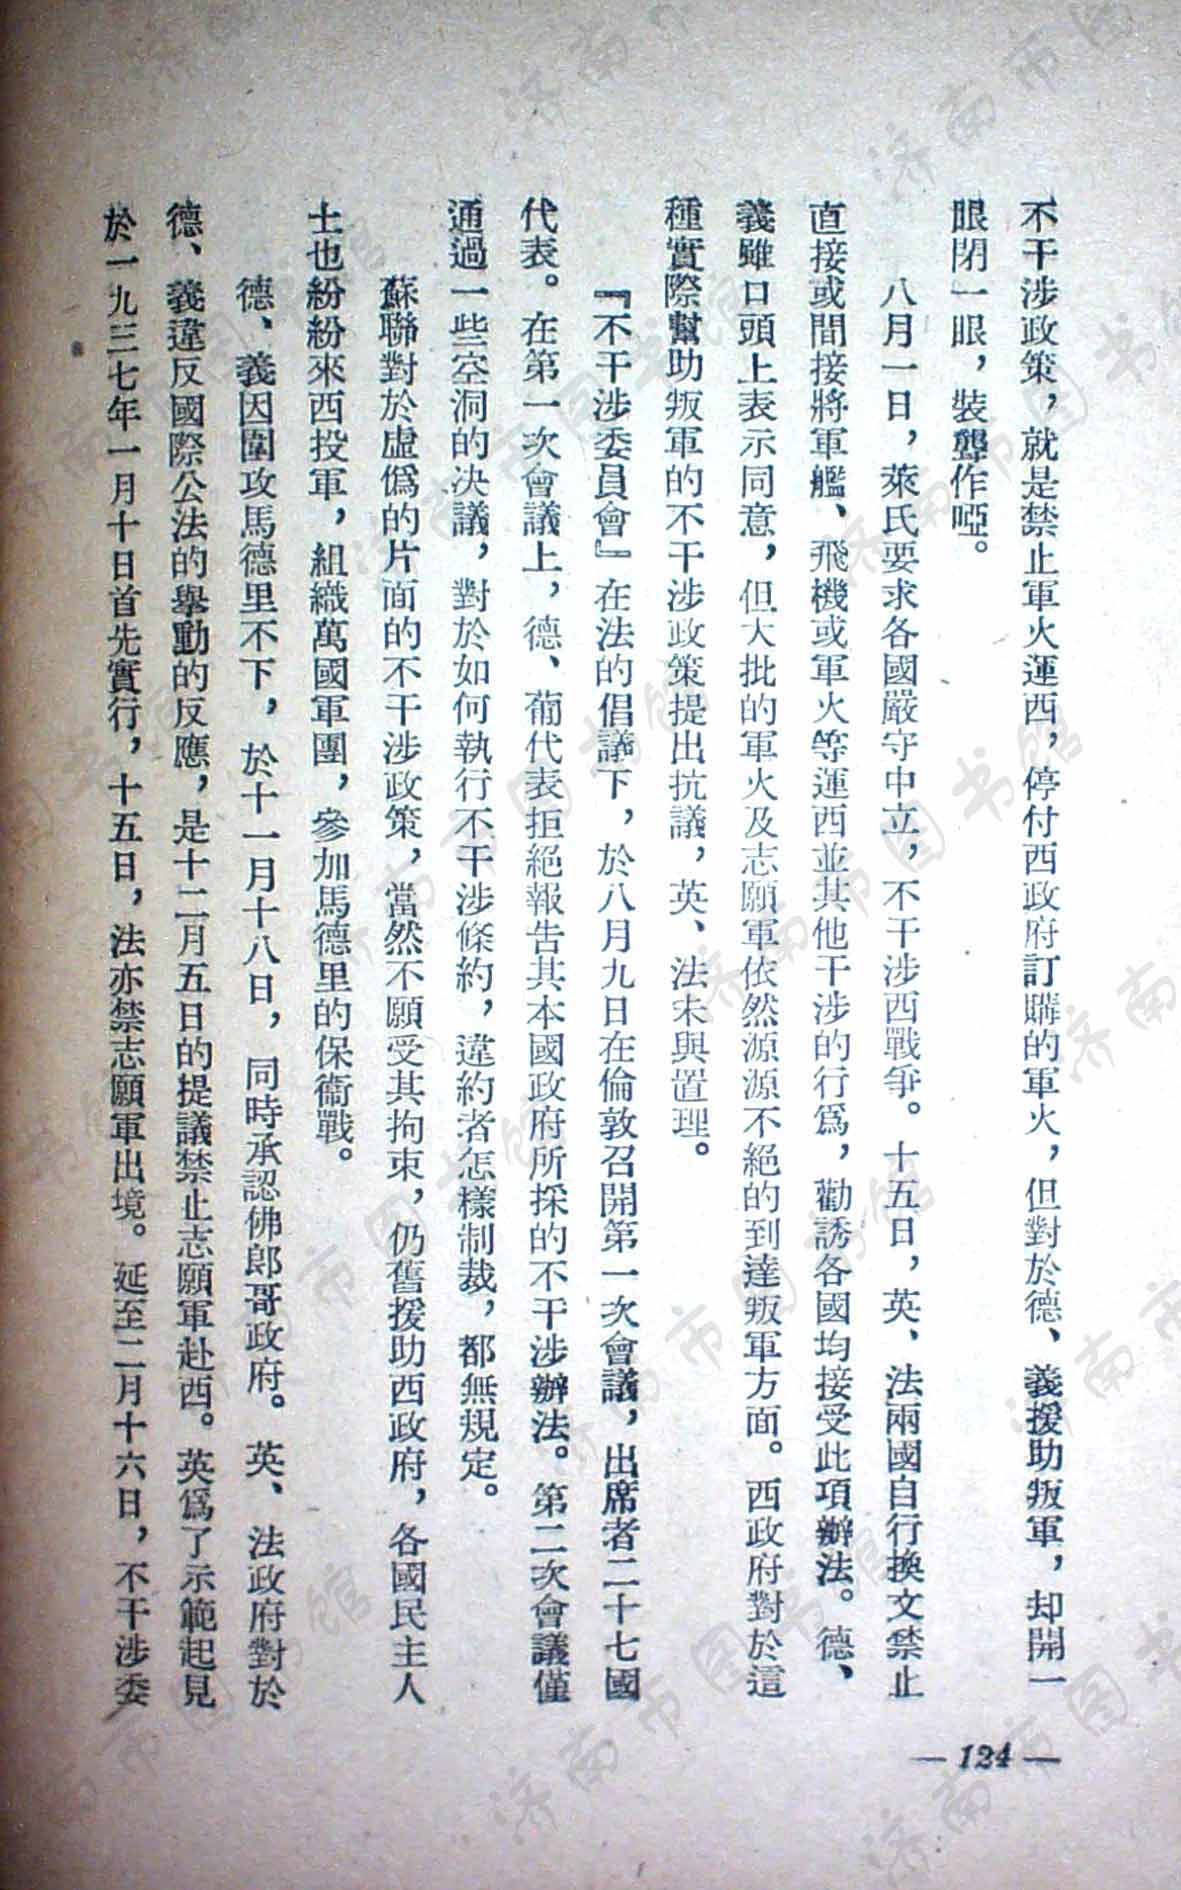 不干涉政策，就是禁止軍火運西，停付西政府訂購的軍火，但對於德、義援助叛軍，却開一
眼閉一眼，裝聾作啞。
八月一日，萊氏要求各國嚴守中立，不干涉西戰爭。十五日，英、法兩國自行換文禁止
直接或間接將軍艦、飛機或軍火等運西並其他干涉的行爲，勸誘各國均接受此項辦法。德、
義雖口頭上表示同意，但大批的軍火及志願軍依然源源不絕的到達叛軍方面。西政府對於這
種實際幫助叛軍的不干涉政策提出抗議，英、法未與置理。
『不干涉委員會』在法的倡議下，於八月九日在倫敦召開第一次會議，出席者二十七國
代表。在第一次會議上，德、葡代表拒絕報告其本國政府所採的不干涉辦法。第二次會議僅
通過一些空洞的決議，對於如何執行不干涉條約，違約者怎樣制裁，都無規定。
蘇聯對於虛僞的片面的不干涉政策，當然不願受其拘束，仍舊援助西政府，各國民主人
士也紛紛來西投軍，組織萬國軍團，參加馬德里的保衞戰。
德、義因圍攻馬德里不下，於十一月十八日，同時承認佛郎哥政府。英、法政府對於
德、義違反國際公法的舉動的反應，是十二月五日的提議禁止志願軍赴西。英爲了示範起見
於一九三七年一月十日首先實行，十五日，法亦禁志願軍出境。延至二月十六日，不干涉委
— 124 —
济南市图书馆